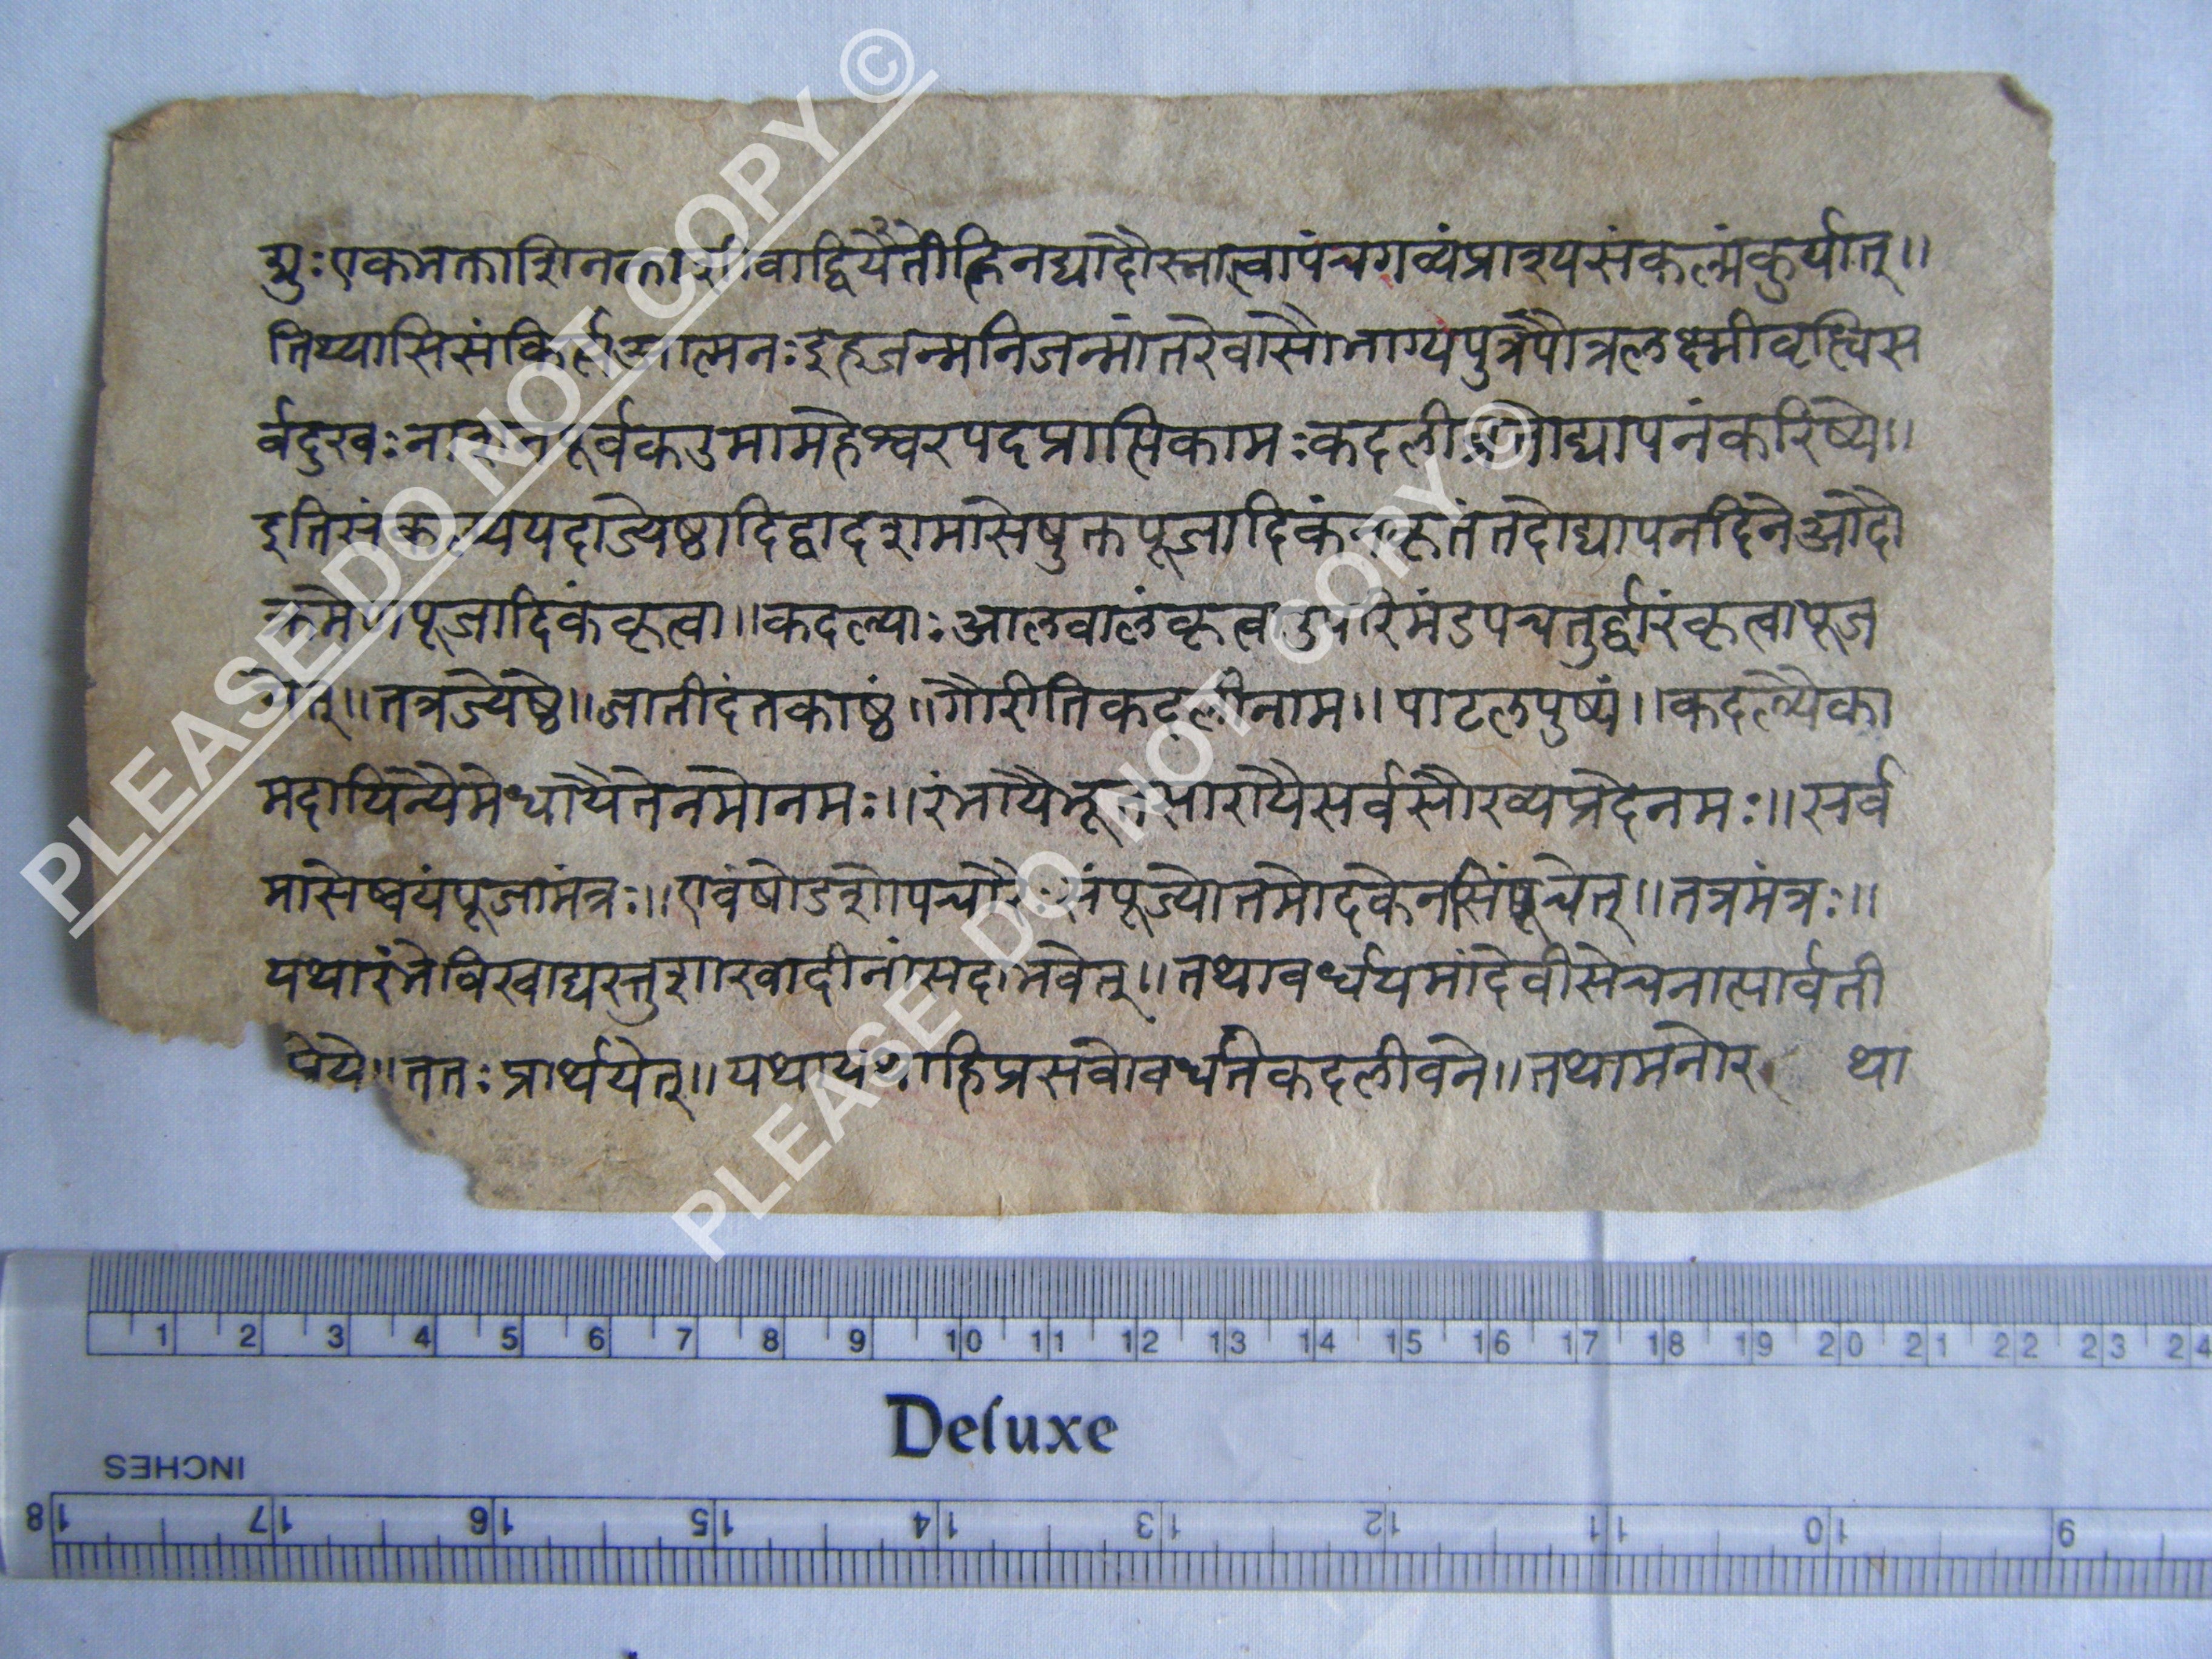 PLEASE DO NOT COPY ©
PLEASE DO NOT COPY ©
युः एकभक्ताशिनक्ता वाद्वितीयेह्निनद्यादौस्नात्वापंचगव्यंप्राश्यसंकल्पंकुर्यात्॥
आत्मनः इहजन्मनिजन्मांतरेवासौभाग्यपुत्रपौत्रलक्ष्मीवृद्धिस
र्वदुखः पूर्वकउमामहेश्वरपदप्राप्तिकामः कदली द्यापनंकरिष्ये॥
इतिसंकल्प्ययदाज्येष्ठादिद्वादशमासेषुक्तपूजादिकं तदोद्यापनदिनेआदौ
क्रमेणपूजादिकंकृत्वा॥कदल्याः आलवालंकृत्वा उपरिमंडपचतुर्द्वारंकृत्वापूज
येत्॥तत्रज्येष्ठे॥जातीदंतकाष्ठं॥गौरीतिकदलीनाम॥पाटलपुष्पं॥कदल्यैका
मदायिन्यैमेधायैतेनमोनमः॥रंभायैभूतसारायैसर्वसौख्यप्रदेनमः॥सर्व
मासेष्वयंपूजामंत्रः॥एवंषोडशोपचारैः संपूज्योत्तमोदकेन तत्रमंत्रः॥
यथारंभे शाखादीनांसदाभवेत्॥तथावर्धयमांदेवीसेचनात्पार्वती
प्रिये॥ततः प्रार्थयेत्॥यथायथाहिप्रसवोवर्धतेकदलीवने॥तथामनोर था
1 2 3 4 5 6 7 8 9 10 11 12 13 14 15 16 17 18 19 20 21 22 23 24
Deluxe
INCHES
18 17 16 15 14 13 12 11 10 9